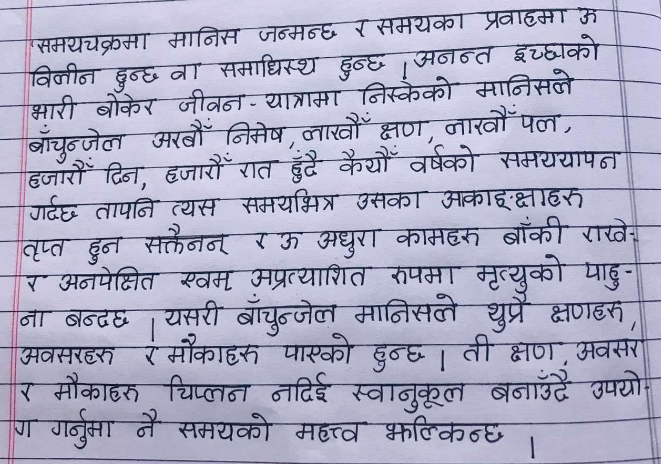 "समयचक्रमा मानिस जन्मन्छ र समयका प्रवाहमा ऊ
विलीन हुन्छ वा समाधिस्थ हुन्छ । अनन्त इच्छाको
भारी बोकेर जीवन-यात्रामा निस्केको मानिसले
बाँचुन्जेल अरबौँ निमेष, लाखौँ क्षण, लाखौँ पल,
हजारौँ दिन, हजारौँ रात हुँदै कैयौँ वर्षको समययापन
गर्दछ तापनि त्यस समयभित्र उसका आकाङ्क्षाहरू
तृप्त हुन सक्तैनन् र ऊ अधुरा कामहरू बाँकी राखे-
र अनपेक्षित एवम् अप्रत्याशित रूपमा मृत्युको पाहु-
ना बन्दछ । यसरी बाँचुन्जेल मानिसले थुप्रै क्षणहरू,
अवसरहरू र मौकाहरू पाएको हुन्छ । ती क्षण, अवसर
र मौकाहरू चिप्लन नदिई स्वानुकूल बनाउँदै उपयो-
ग गर्नुमा नै समयको महत्त्व झल्किन्छ ।